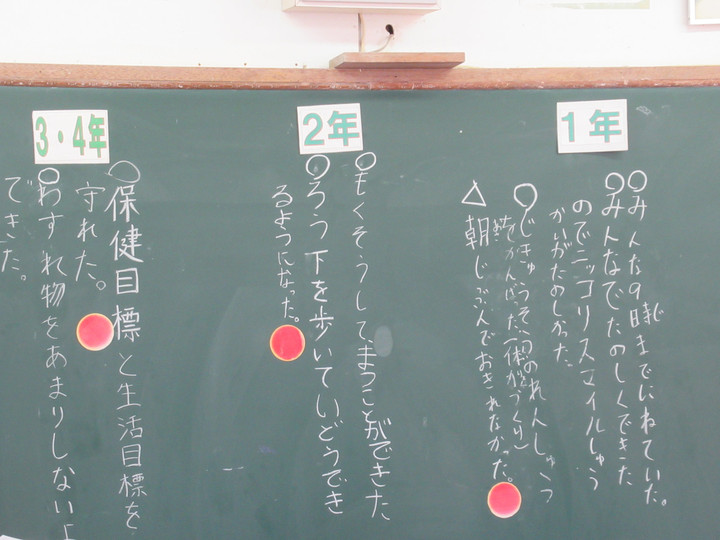 1年
○みんな9時じまでにねていた。
○みんなでたのしくできた
のでニッコリスマイルしゅう
かいがたのしかった
○じきゅうそうのれんしゅう
をがんばった(体力づくり)
△朝じぶんでおきれなかった。
2年
○もくそうして、まつことができた
○ろう下を歩いていどうでき
るようになった。
3・4年
○保健目標と生活目標を
守れた。
○わすれ物をあまりしないよ
できた。